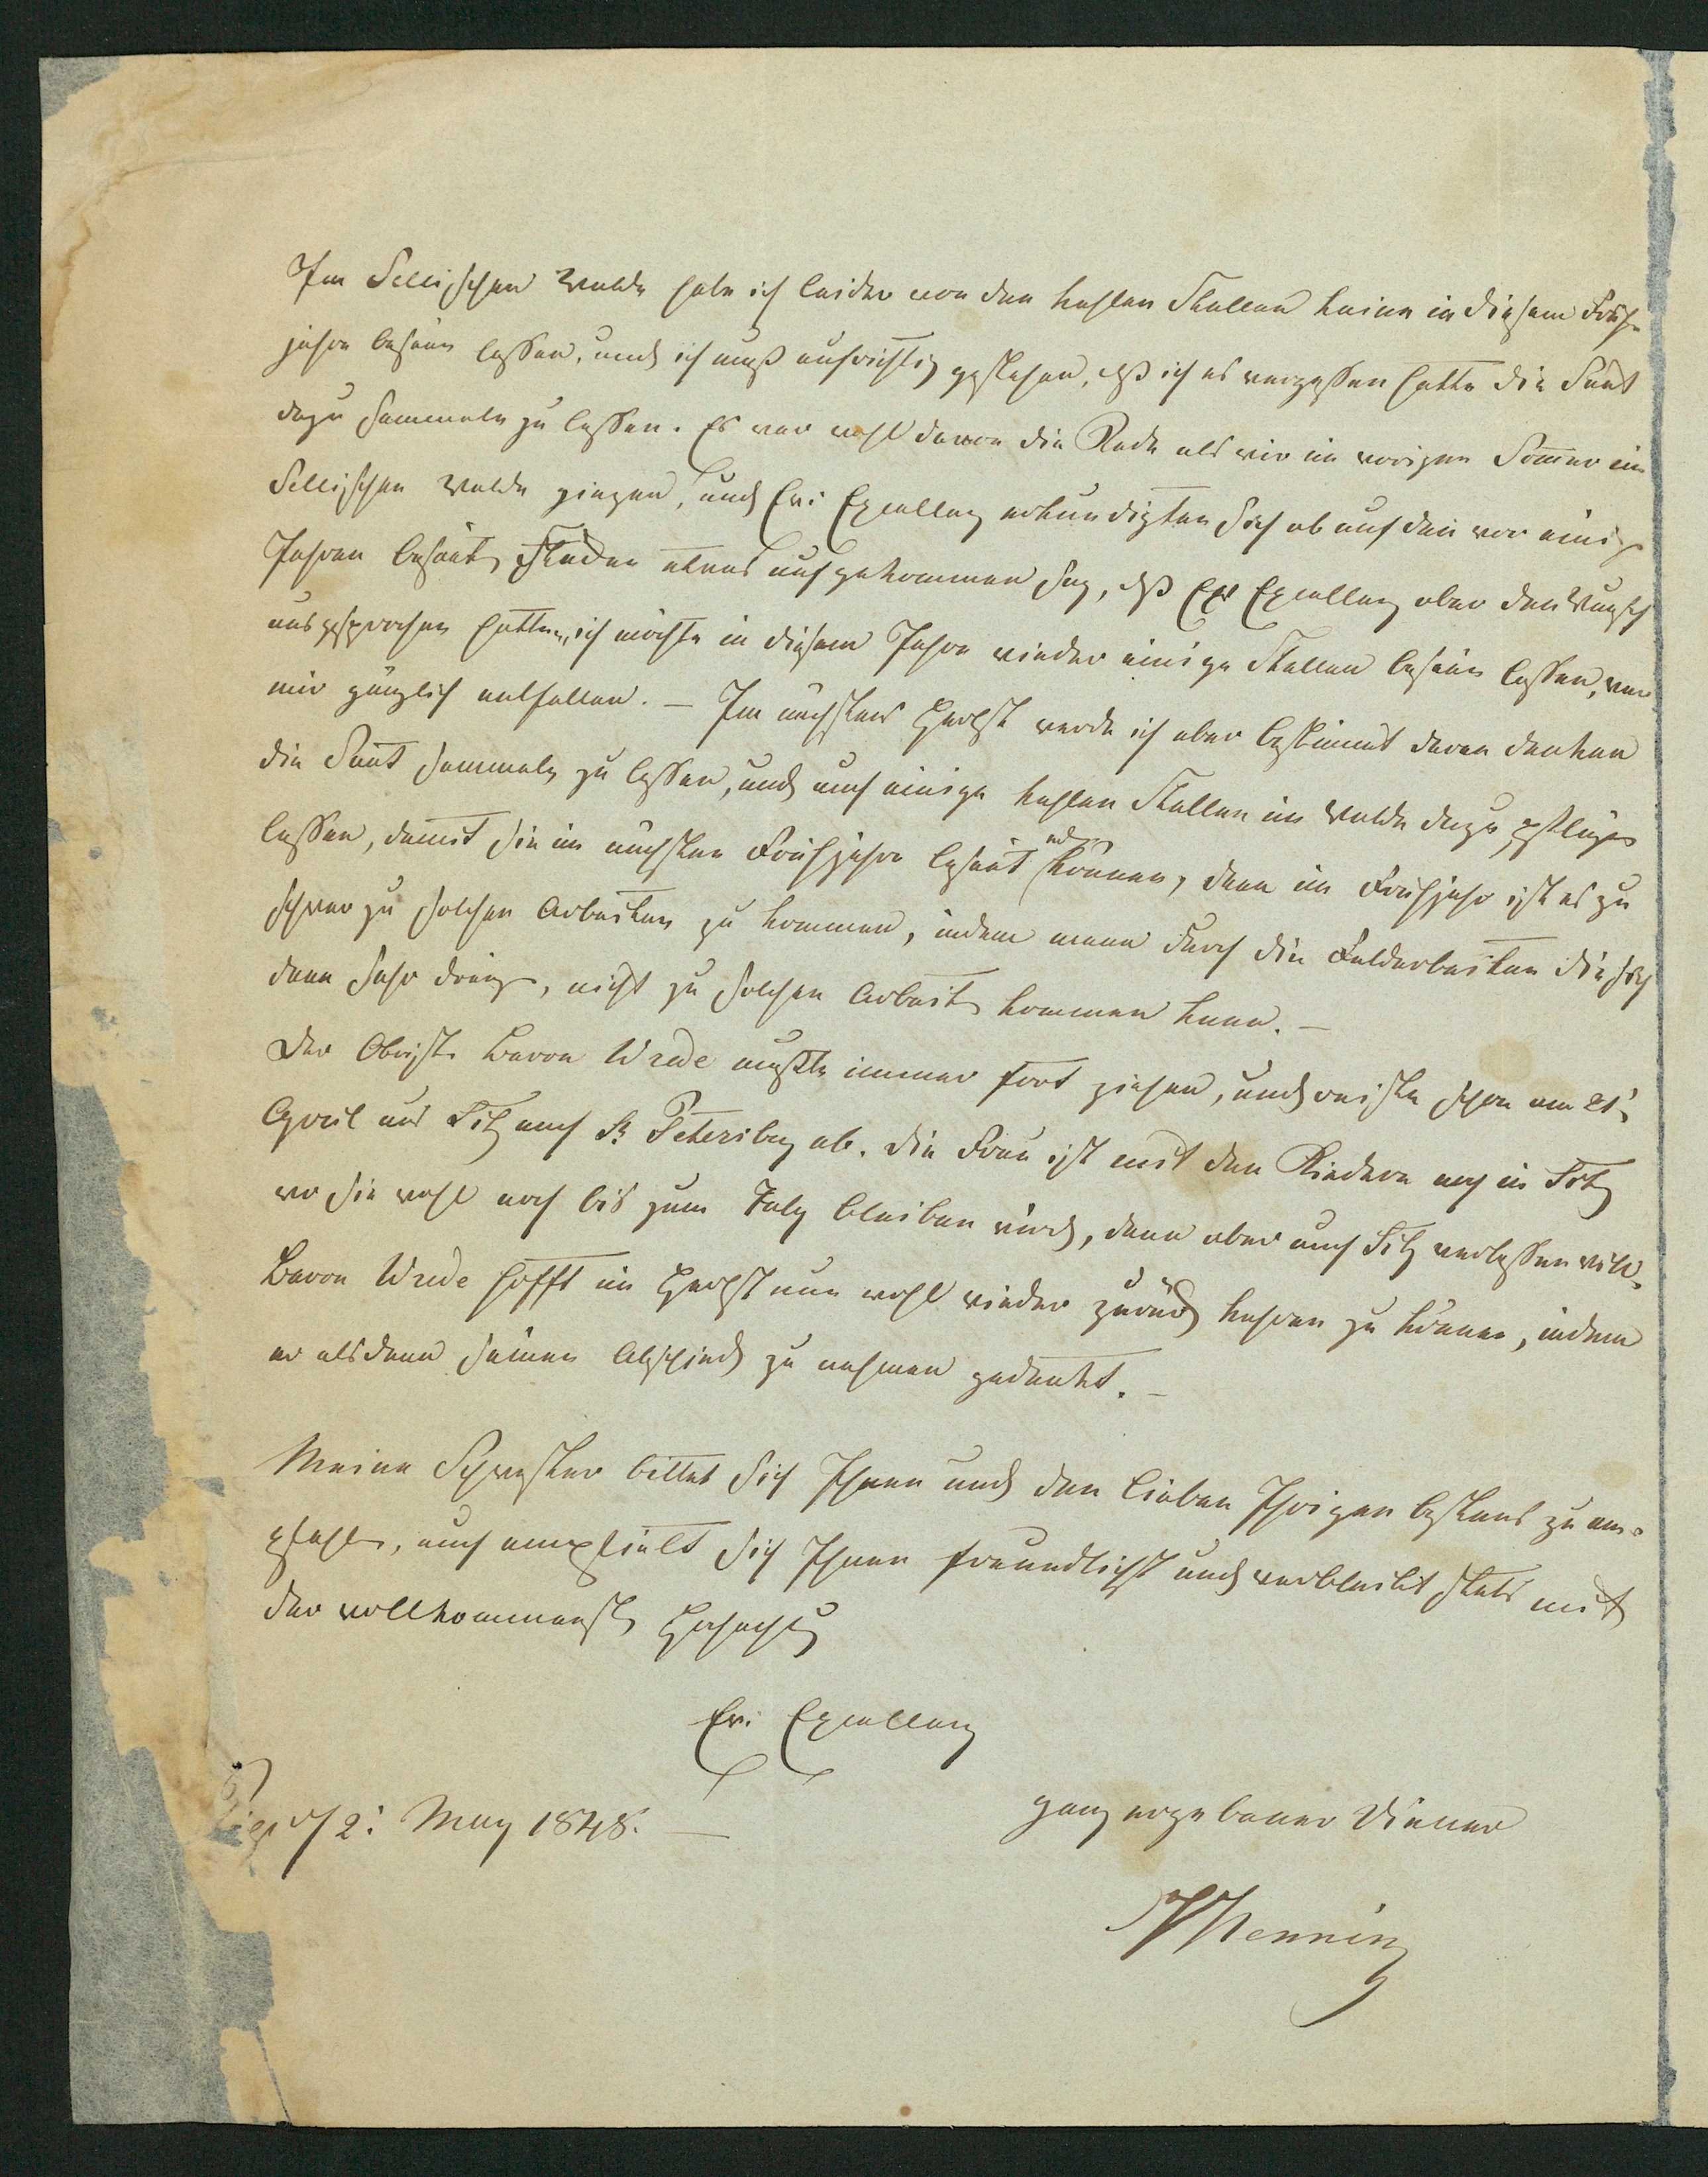 Im Sellischen Walde habe ich leider von den kahlen Stellen keine in diesem Früh¬
jahre besäen lassen, und ich muß aufrichtig gestehen, daß ich es vergessen hatte die Saat
dazu sammeln zu lassen. Es war wohl davon die Rede als wir im vorigen Sommer im
Sellischen Walde gingen, und Ew: Excellenz erkundigten sich ob auf den vor einig
Jahren besäet etwas aufgekommen sey, daß Ew Excellenz aber den Wunsch
ausgesprochen hatten, ich möchte in diesem Jahre wieder einige Stellen besäen lassen, war
mir gänzlich entfallen. — Im nächsten Herbst werde ich aber bestimmt daran denken
die Saat sammeln zu lassen, und auch einige kahlen Stellen im Walde dazu pflügen
lassen, damit sie im nächsten Frühjahre besäet können, denn im Frühjahr ist es zu
schwer zu solchen Arbeiten zu kommen, indem mann durch die Feldarbeiten die sich
dann sehr dräng, nicht zu solchen Arbeit kommen kann. —
Der Obrist Baron Wrede mußte immer fort ziehen, und reiste schon am 21:
April aus Sitz nach St Petersbg ab. Die Frau ist mit den Kindern noch in Sitz
wo sie wohl noch bis zum July bleiben wird, dann aber auch Sitz verlassen will.
Baron Wrede hofft im Herbst nun wohl wieder zurück kehren zu können, indem
er alsdann seinen Abschied zu nehmen gedenkt. —
Meine Schwester bittet sich Ihnen und den lieben Ihrigen bestens zu em¬
pfehlen, auch empfielt sich Ihnen freundlichst und verbleibt stets mit
der vollkommensten Hochachtung
Ew: Excellenz
d 2: May 1848. —
ganz ergebener Diener
Henning